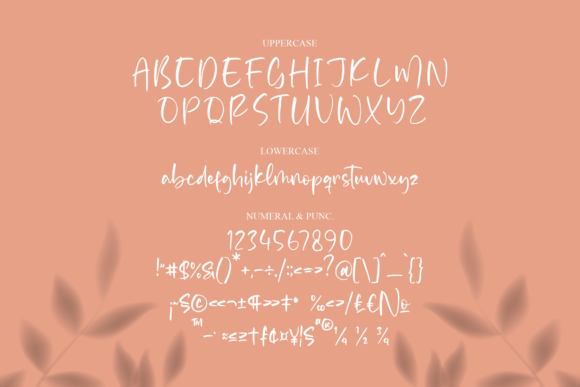 UPPERCASE
ABCDEFGHIJKLMN
OPQRSTUVWXYZ
LOWERCASE
abcdefghijklmnopqrstuvwxyz
NUMERAL & PUNC.
1234567890
!"#$%&()*+,-÷./:;<=>?@[\]^_`{}
¡~§©«¬±¶»‡° ‰<>/£€№
™–·≈≤≥†ƒ¢¤¥¦§"®¼ ½ ¾